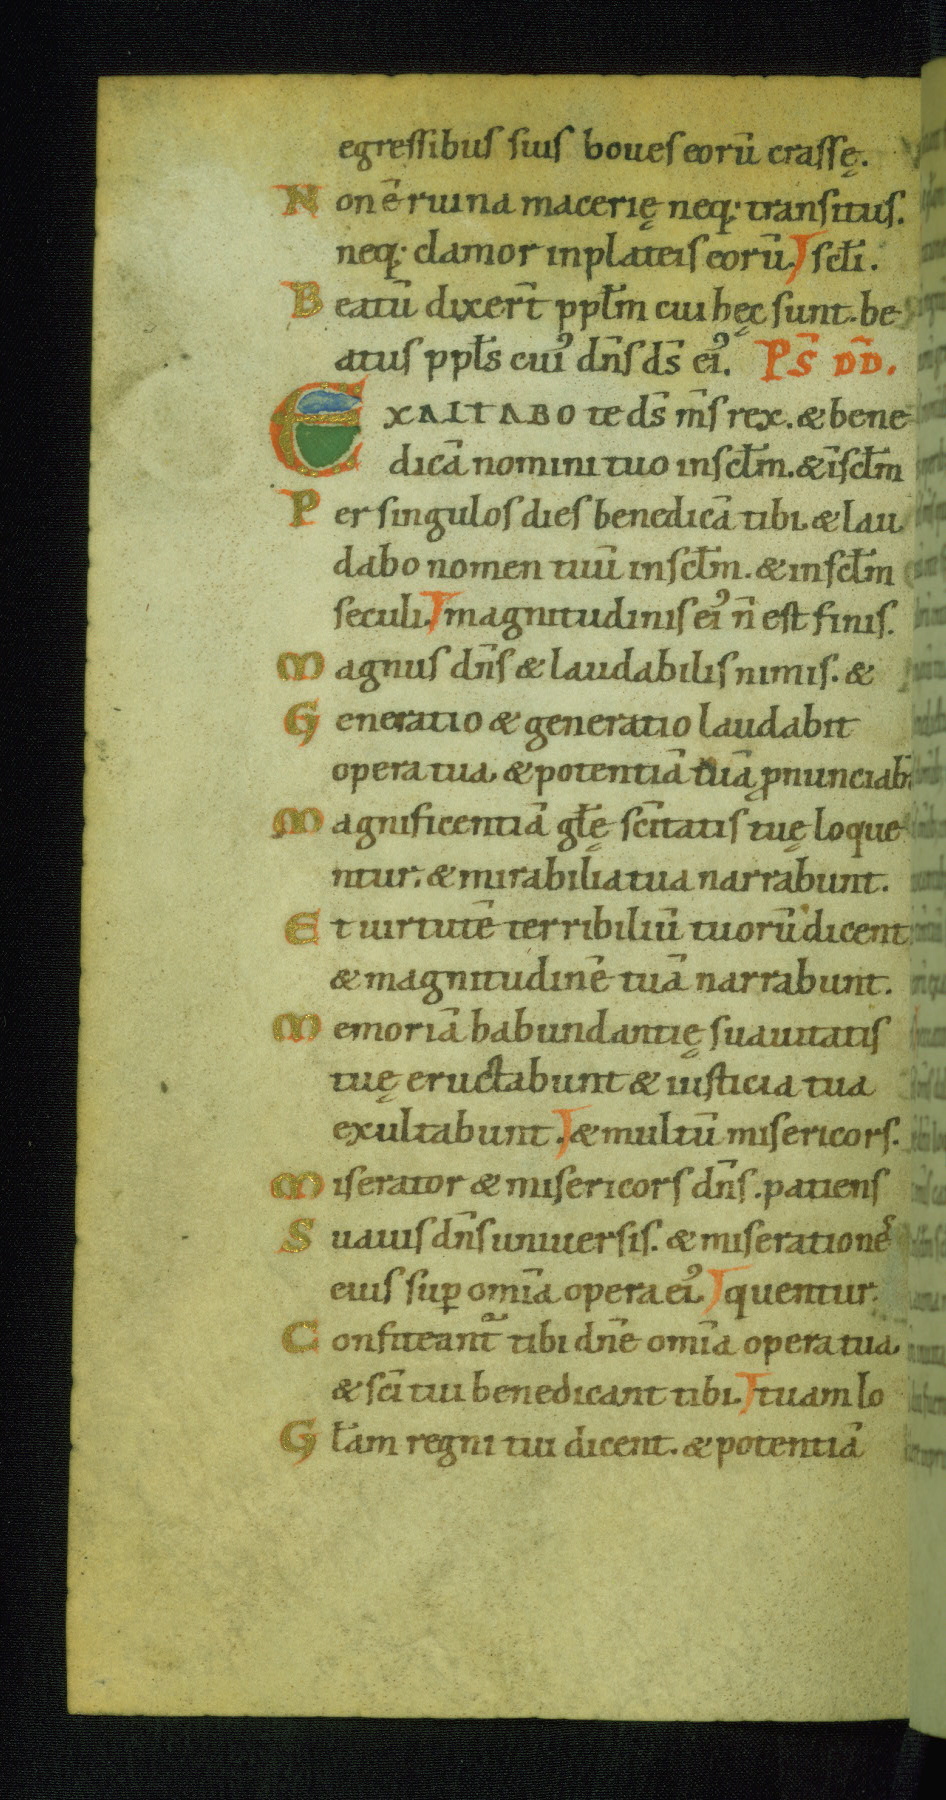 egressibus suis boues eorū crassę.
Non ē ruina macerię neq; transitus.
neq; clamor in plateis eorū. scł̄i.
Beatū dixer̄t ppł̄m cui hęc sunt. be
atus ppł̄s cui᾽ dn̄s ds̄ ei᾽. Ps̄ DD̄.
EXALTABO te ds̄ m̄s rex. & bene
dicā nomini tuo in scł̄m. & ī scł̄m
Per singulos dies benedicā tibi. & lau
dabo nomen tuū in scł̄m. & in scł̄m
seculi. magnitudinis ei᾽ n̄ est finis.
Magnus dn̄s & laudabilis nimis. &
Generatio & generatio laudabit
opera tua, & potentiā tuā ꝓnunciab̄.
Magnificentiā gł̄ę sc̄itatis tuę loque
ntur. & mirabilia tua narrabunt.
Et uirtutē terribiliū tuorū dicent
& magnitudinē tuā narrabunt.
Memoriā habundantię suauitatis
tuę eructabunt & iusticia tua
exultabunt. & multū misericors.
Miserator & misericors dn̄s. patiens
Suauis dn̄s uniuersis. & miserationeˢ
eius suꝑ om̄ia opera ei᾽. quentur.
Confiteant᷑ tibi dn̄e om̄ia opera tua,
& sc̄i tui benedicant tibi. tuam lo
Gł̄am regni tui dicent. & potentiā